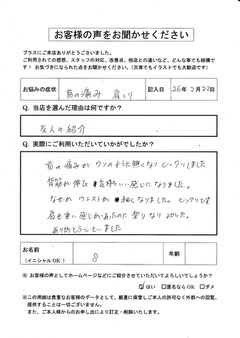 お客様の声をお聞かせください
プラスにご来店ありがとうございました。
ご利用されての感想、スタッフの対応、改善点、他店との違いなど、どんな事でも結構で
す！お気づきになられた点をお聞かせください。（文章でもイラストでも大歓迎です）
お悩みの症状 首の痛み 肩こり 記入日 26年2月22日
Q. 当店を選んだ理由は何ですか？
友人の紹介
Q. 実際にご利用いただいていかがでしたか？
首の痛みがウソのように無くなりビックリしました
背筋が伸び 気持いい感じになりました
なぜかウエストが細くなりました。ビックリです
肩も重い感じがあったのに 楽になりました
ありがとうございました。
お名前
（イニシャルOK） 年齢
※ お客様の声としてホームページなどにご紹介させていただいてよろしいでしょうか？
はい □匿名ならOK □ダメ
※この用紙は貴重なお客様のデータとして、厳重に保管しご本人の許可なく外部への回覧、
提供することは一切ございません。
また、ご本人様からのお申し出により訂正・削除いたします。